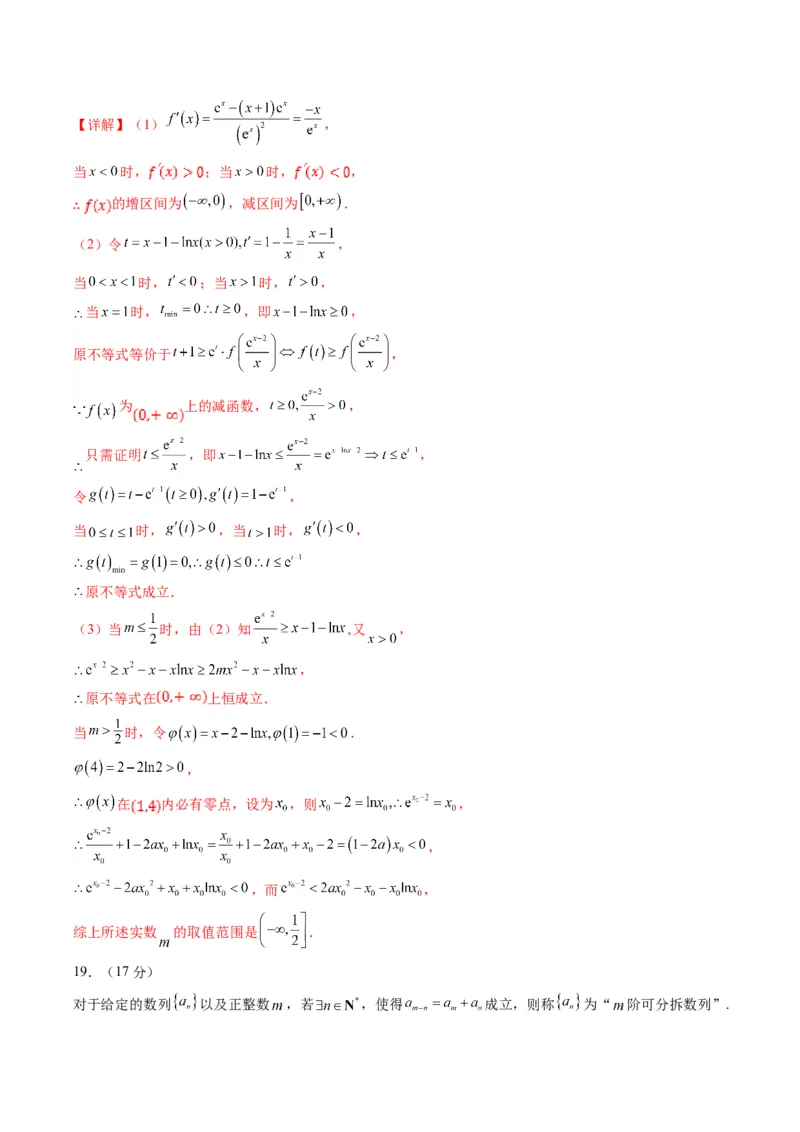 【详解】（1）f′(x) = (eˣ − (x+1)eˣ)/(eˣ)² = −x/eˣ，
当x < 0时，f′(x) > 0；当x > 0时，f′(x) < 0，
∴ f(x)的增区间为(−∞,0)，减区间为[0,+∞)．
（2）令t = x−1−lnx(x > 0), t′ = 1 − 1/x = (x−1)/x，
当0 < x < 1时，t′ < 0；当x > 1时，t′ > 0，
∴当x = 1时，t_min = 0 ∴ t ≥ 0，即x−1−lnx ≥ 0，
原不等式等价于t+1 ≥ eᵗ · f(e^(x−2)/x) ⇔ f(t) ≥ f(e^(x−2)/x)，
∵ f(x)为(0,+∞)上的减函数，t ≥ 0, e^(x−2)/x > 0，
∴ 只需证明t ≤ e^(x−2)/x，即x−1−lnx ≤ e^(x−2)/x = e^(x−lnx−2) ⇒ t ≤ e^(t−1)，
令g(t) = t − e^(t−1)(t ≥ 0), g′(t) = 1 − e^(t−1)，
当0 ≤ t ≤ 1时，g′(t) > 0，当t > 1时，g′(t) < 0，
∴ g(t)_min = g(1) = 0, ∴ g(t) ≤ 0 ∴ t ≤ e^(t−1)
∴原不等式成立．
（3）当m ≤ 1/2时，由（2）知e^(x−2)/x ≥ x−1−lnx,又x > 0，
∴ e^(x−2) ≥ x² − x − xlnx ≥ 2mx² − x − xlnx，
∴原不等式在(0,+∞)上恒成立．
当m > 1/2时，令φ(x) = x−2−lnx, φ(1) = −1 < 0．
φ(4) = 2−2ln2 > 0，
∴ φ(x)在(1,4)内必有零点，设为x₀，则x₀ − 2 = lnx₀, ∴ e^(x₀−2) = x₀，
∴ e^(x₀−2)/x₀ + 1 − 2ax₀ + lnx₀ = x₀/x₀ + 1 − 2ax₀ + x₀ − 2 = (1−2a)x₀ < 0，
∴ e^(x₀−2) − 2ax₀² + x₀ + x₀lnx₀ < 0，而e^(x₀−2) < 2ax₀² − x₀ − x₀lnx₀，
综上所述实数m的取值范围是(−∞, 1/2]．
19．（17分）
对于给定的数列{aₙ}以及正整数m，若∃n∈N*，使得a_(m−n) = a_m + a_n成立，则称{aₙ}为“m阶可分拆数列”．